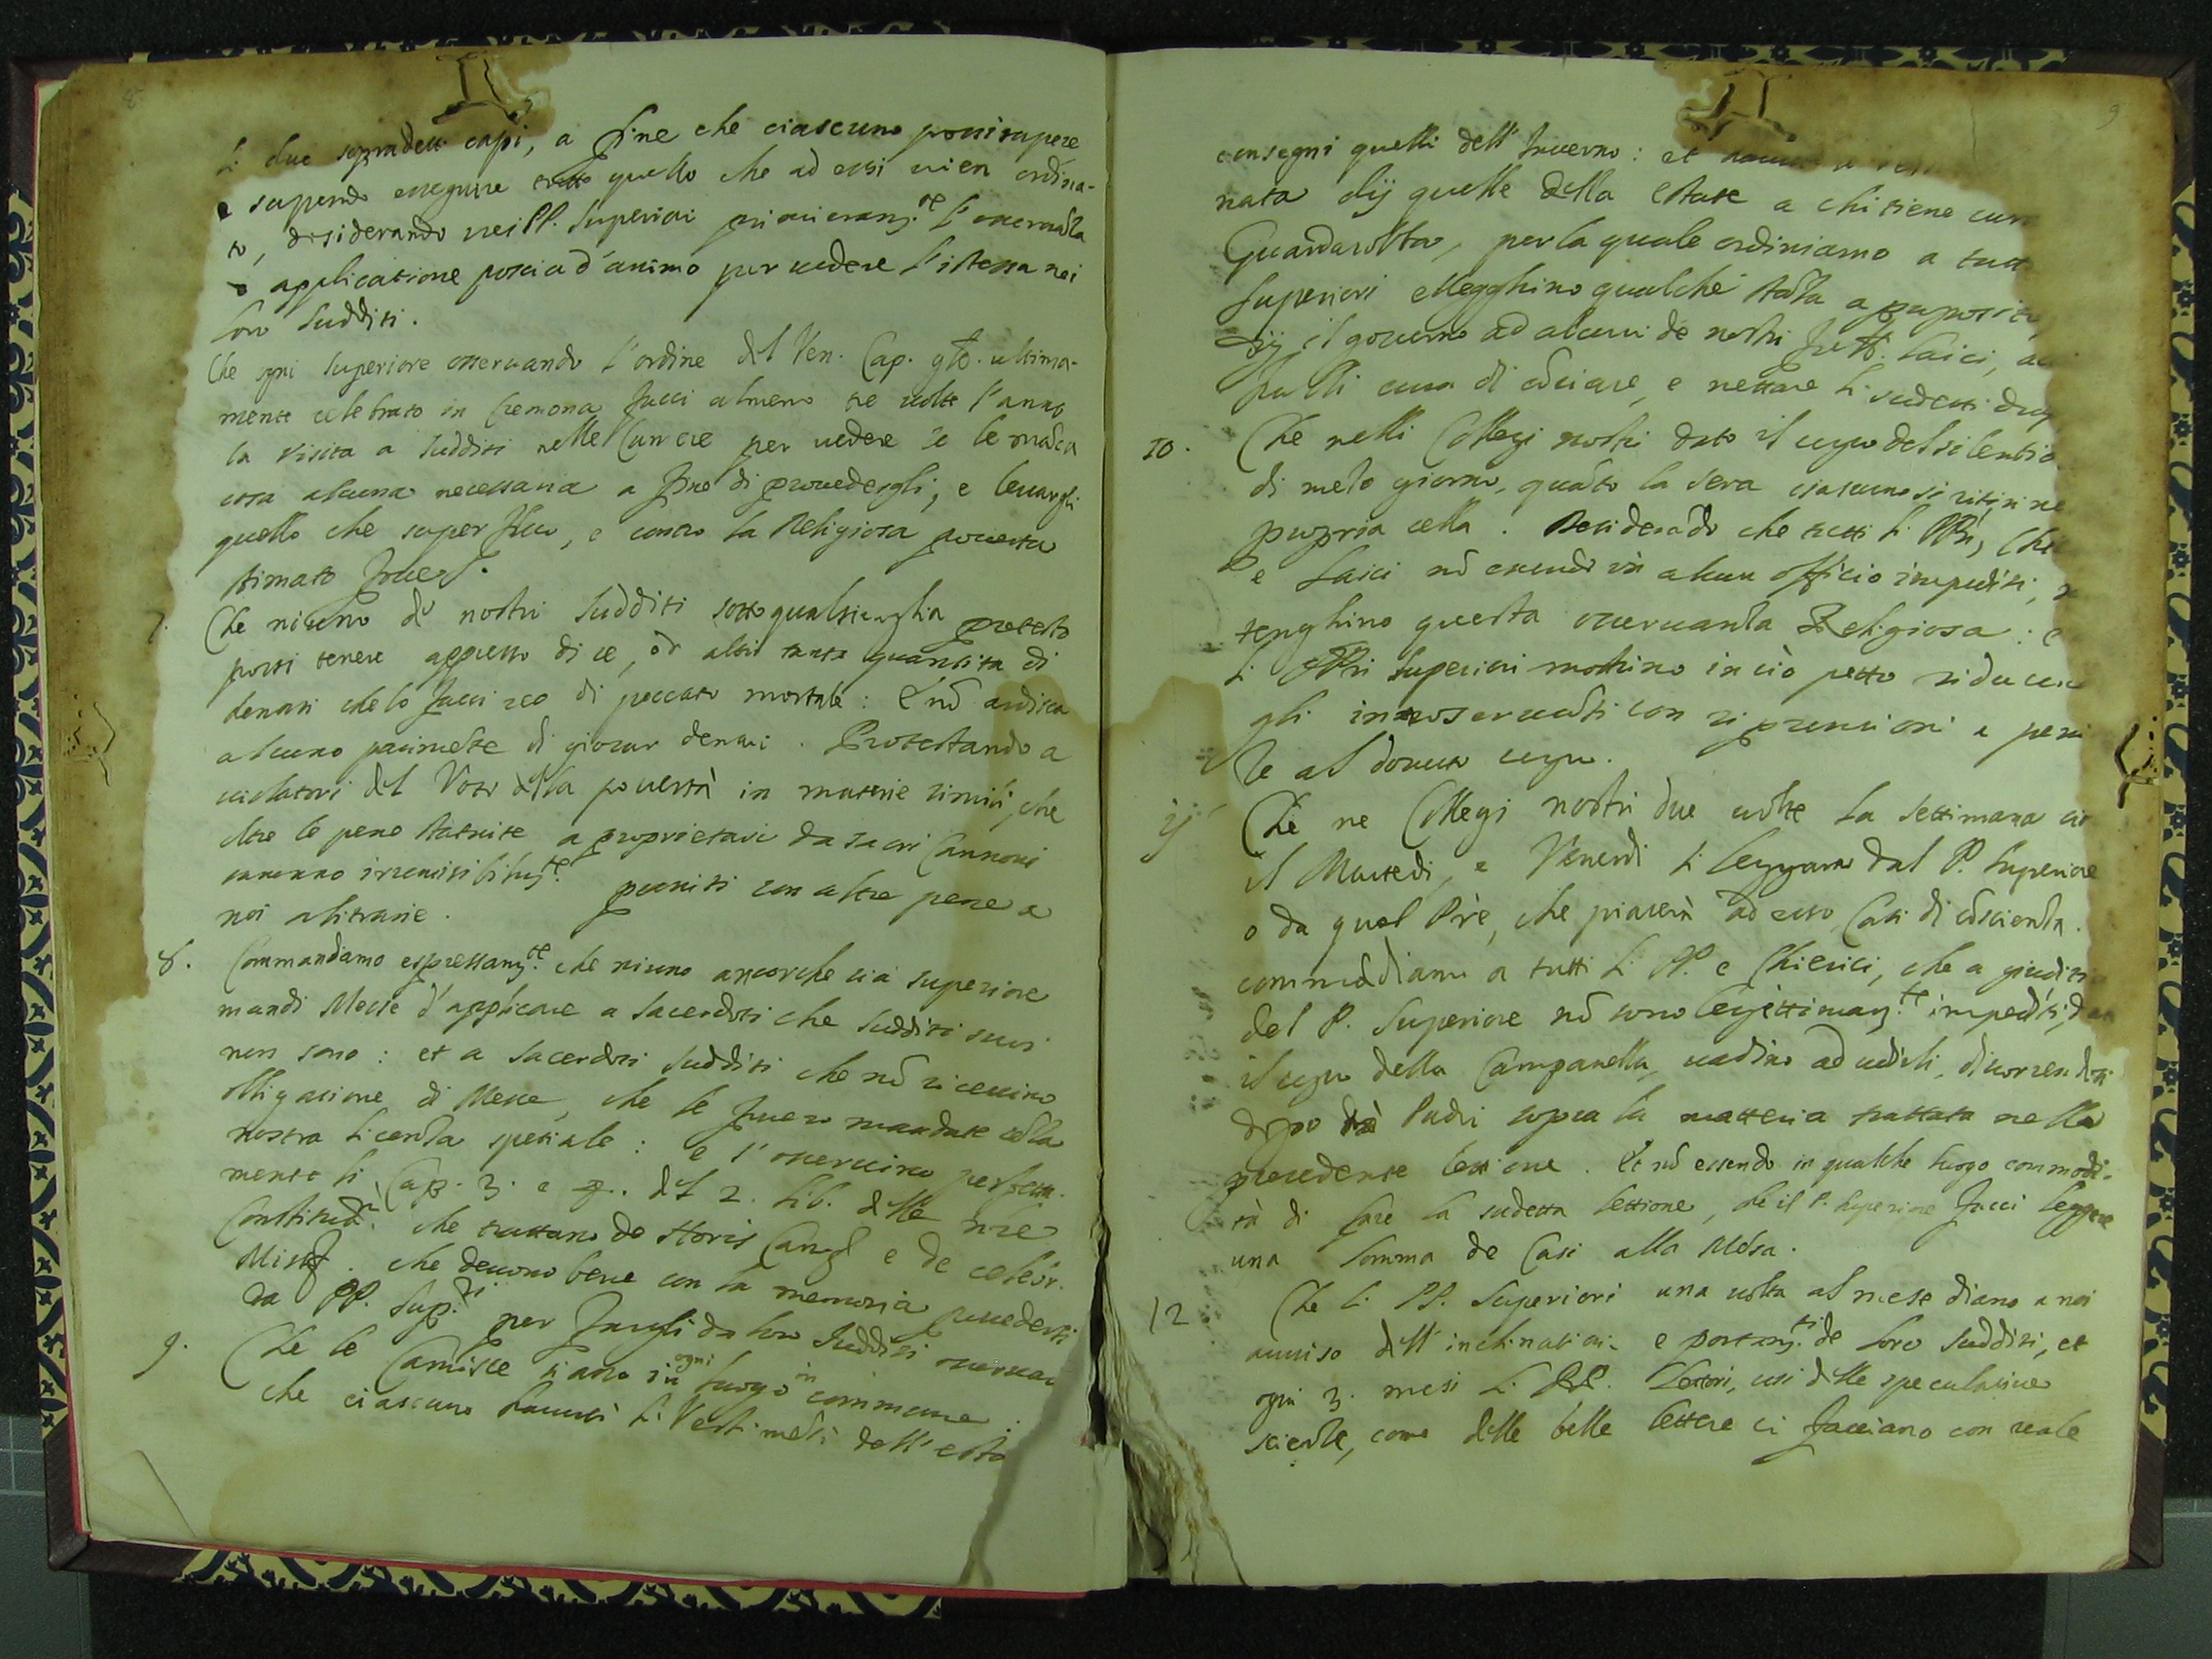 li due sopradetti capi, a fine che ciascuno possi sapere
e sapendo esseguire tutto quello che ad essi vien ordina-
to, desiderando nei PP. Superiori primieram.te l'osservãza
e applicatione poscia d'animo per vedere l'istessa nei
loro sudditi.
Che ogni superiore osservando l'ordine del Ven. Cap. gñle. ultima-
mente celebrato in Cremona facci almeno tre volte l'anno
la visita a sudditi nelle Camere per vedere se le mãca
cosa alcuna necessaria a fine di provedergli, e levargli
quello che superfluo, e contro la Religiosa povertà
stimato fosse.
7. Che niuno dè nostri sudditi sotto qualsivoglia pretesto
possi tenere appresso di se, od altri tanta quantità di
denari che lo facci reo di peccato mortale: E nõ ardisca
alcuno parimẽte di giocar denari. Protestando a
violatori del Voto della povertà in materie simili, che
oltre le pene statuite a proprietari da sacri Cannoni
saranno irremisibilm.te puniti con altre pene a
noi arbitrarie.
8. Commandamo espressam.te che niuno ancorche sia superiore
mandi Messe d'applicare a sacerdoti che sudditi suoi
non sono: et a sacerdoti sudditi che nõ ricevino
obligatione di Messe, che le fosero mandate sẽza
nostra licenza spetiale: e l'osservino perfetta-
mente li Cap. 3. e del 2. lib. delle nr̃e
Constitut.ni che trattano de Horis Can. e de celebr.
Miss. che devono bene con la memoria possedersi
da PP. Sup.ri per farsli da loro sudditi osservar
9. Che le Camiscie siano in ogni luogo in commune:
che ciascuno havuti li Vestimẽti dell'està
9
consegni quelli dell'Inverno: et
nata dij quelle della Estate a chi tiene cura
Guardarobba, per la quale ordiniamo a tutti
superiori ellegghino qualche stãza a proposito
dij il governo ad alcuni de nostri fr̃lli. laici,
li cura di cõciare, e nettare li sudetti
10. Che nelli Collegi nostri dato il segno del silentio
di mezo giorno, quãto la sera ciascuno si ritiri ne
propria cella. Desiderãdo che tutti li PPri, Chi
e Laici nõ essendo in alcun officio impediti,
tenghino questa osservanza Religiosa: e
li PPri Superiori mostrino in ciò petto riducen
gli inosservãti con riprensioni e peni
ze al dovuto segno.
11 Che ne Collegi nostri due volte la settimana cio
il Martedi, e Venerdi si leggano dal P. Superiore
o da quel Prẽ, che piacerà ad esso, Casi di cõscienza.
commãdiamo a tutti li PP. e Chierici, che a giuditio
del P. Superiore nõ sono legittimam.te impediti, dato
il segno della Campanella, vadino ad udirli, discorrendosi
dopo trà Padri sopra la matteria trattata nella
precedente lettione. Et nõ essendo in qualche luogo commodi-
tà di fare la sudetta lettione, che il P. Superiore facci leggere
una Somma de Casi alla Mẽsa.
12 Che li PP. Superiori una volta al mese diano a noi
avviso dell'inclinationi e portam.ti de loro sudditi, et
ogni 3. mesi li PP. Lettori, cosi delle speculative
scienze, come delle belle lettere ci facciano con reale